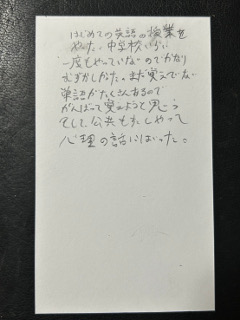 はじめての英語の授業を
やった。中学校いらい
一度もやっていないのでかなり
むずかしかった。まだ覚えてない
単語がたくさんあるので
がんばって覚えようと思う
そして、公共もたしやって
心理の話にはいった。